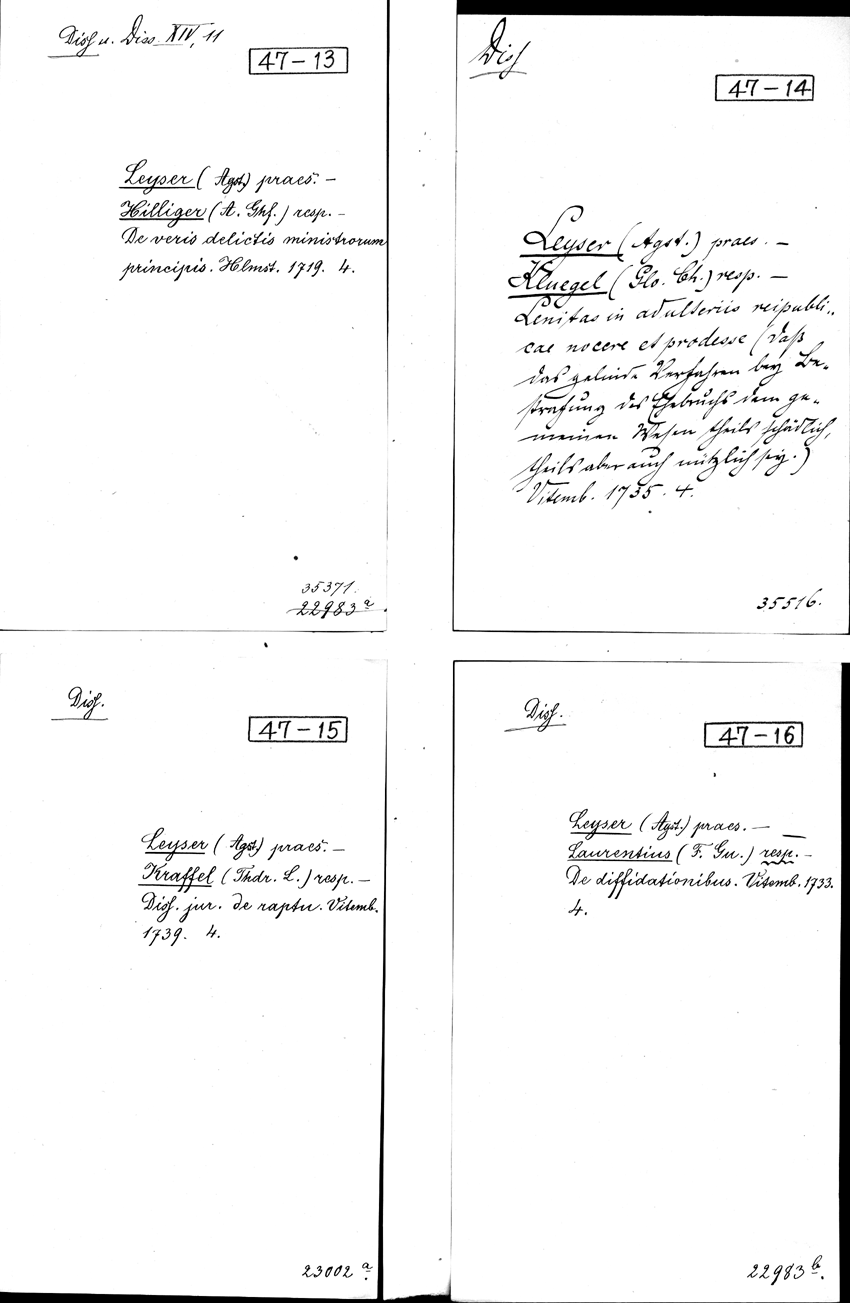 Diss u. Diss XIV, 11
47-13
Leyser (Agst.) praes. -
Hilliger (A. Ghf.) resp. -
De veris delictis ministrorum
principis. Hlmst. 1719. 4.
35371.
22983a
Diss
47-14
Leyser (Agst.) praes. -
Kluegel (Glo. Ch.) resp. -
Lenitas in adulteriis reipubli-
cae nocere et prodesse (daß
das gelinde Verfahren bey Be-
strafung des Ehebruchs dem ge-
meinen Wesen theils schädlich,
theils aber auch nützlich sey.)
Vitemb. 1735. 4.
35516.
Diss.
47-15
Leyser (Agst.) praes. -
Kraffel (Thdr. L.) resp. -
Diss. jur. de raptu. Vitemb.
1739. 4.
23002a.
Diss.
47-16
Leyser (Agst.) praes. -
Laurentius (F. Gu.) resp. -
De diffidationibus. Vitemb. 1733.
4.
22983b.